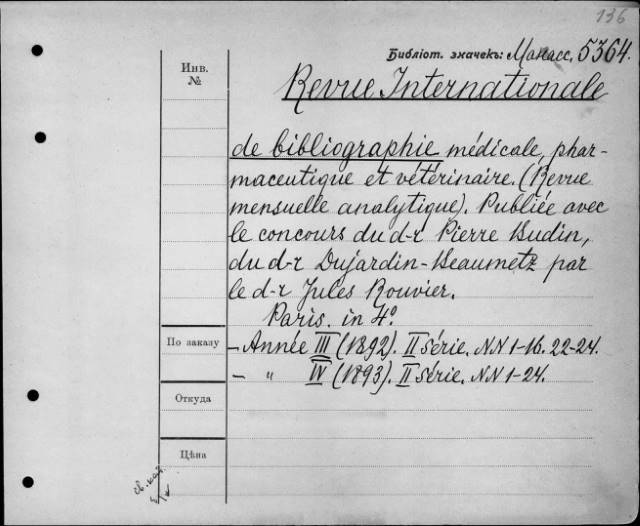 136
Библіот. значекъ: Манасс. 5364.
Инв.
№
Revue Internationale
de bibliographie médicale, phar-
maceutique et vétérinaire. (Revue
mensuelle analytique). Publiée avec
le concours du d-r Pierre Budin,
du d-r Dujardin-Beaumetz par
le d-r Jules Rouvier.
Paris. in 4°.
По заказу
- Année III (1892). II Série. NN 1-16. 22-24.
- " IV (1893). II Série. NN 1-24.
Откуда
Цѣна
св. кат.